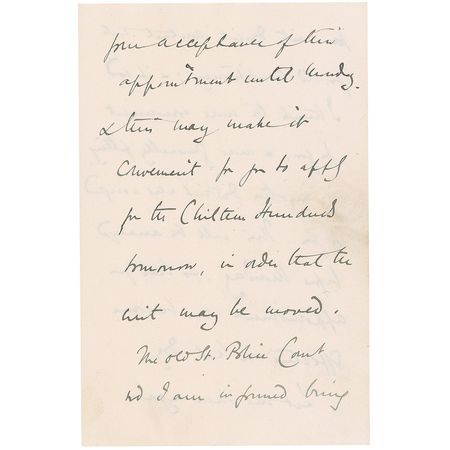 your acceptance of this
appointment until Monday.
& this may make it
convenient for you to apply
for the Chiltern Hundreds
tomorrow, in order that the
writ may be moved.
The old St. Police Court
wd I am informed bring